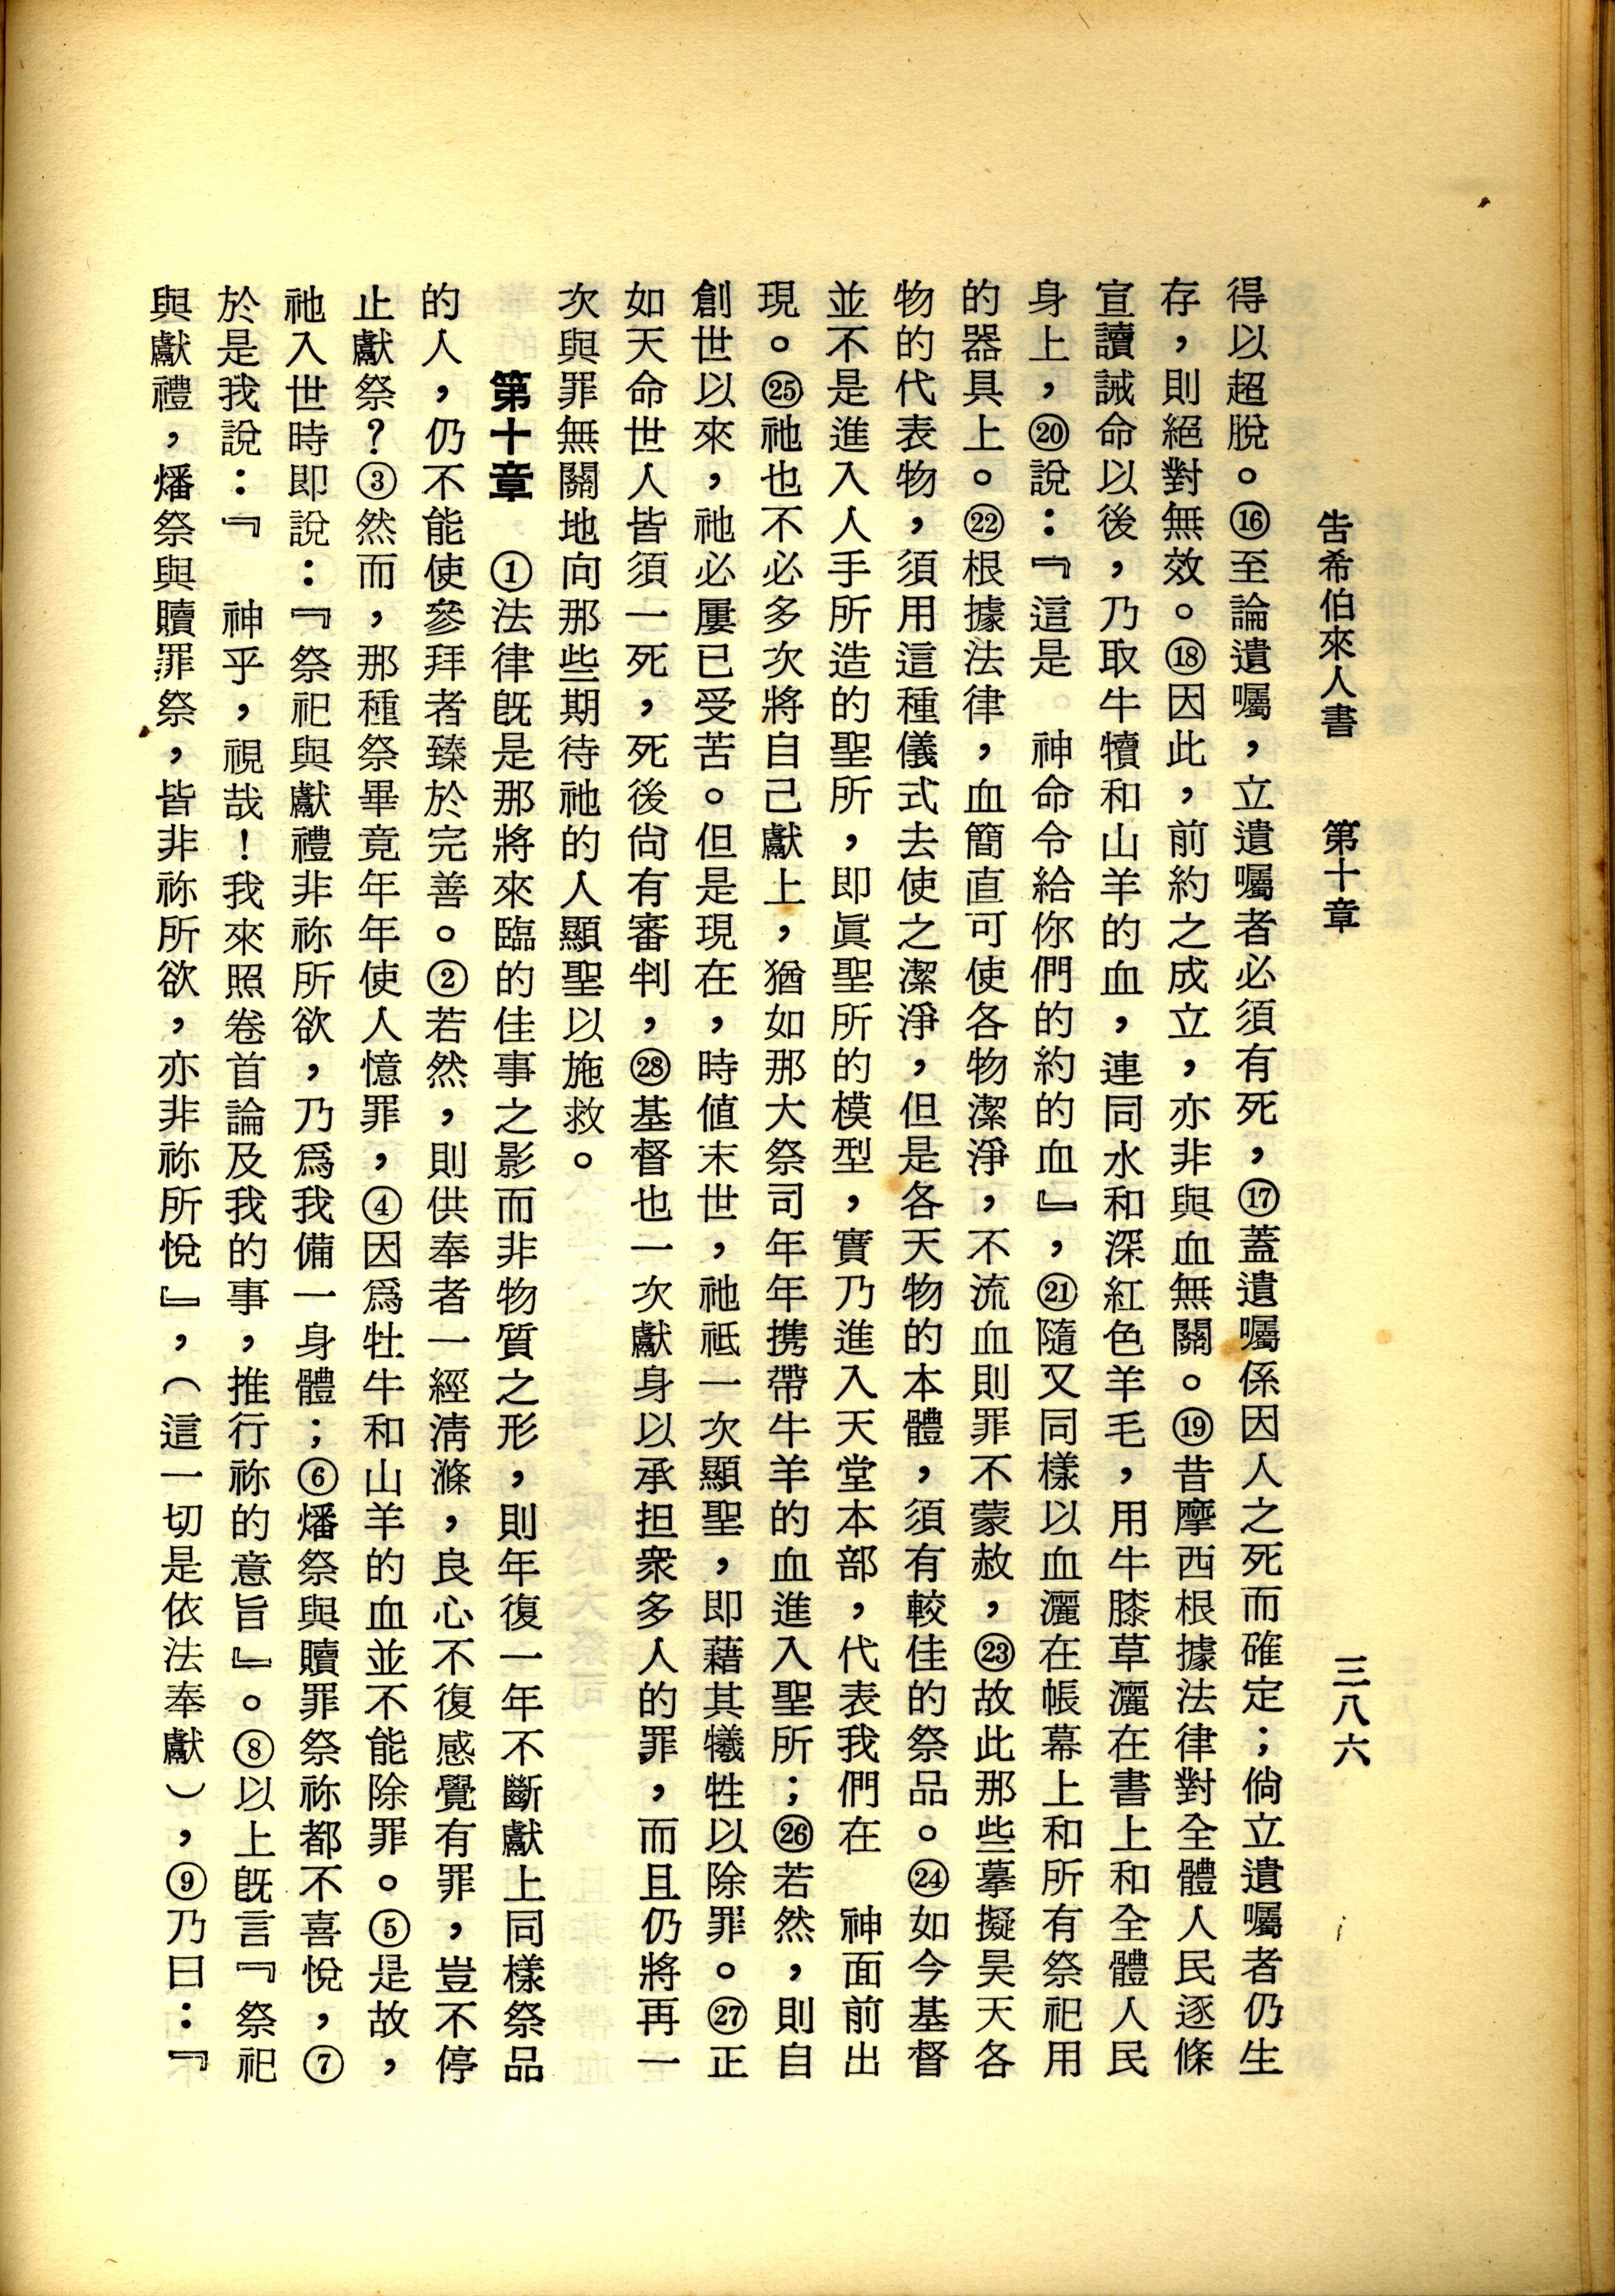 告希伯來人書　第十章　三八六
得以超脫。⑯至論遺囑，立遺囑者必須有死，⑰蓋遺囑係因人之死而確定；倘立遺囑者仍生
存，則絕對無效。⑱因此，前約之成立，亦非與血無關。⑲昔摩西根據法律對全體人民逐條
宣讀誡命以後，乃取牛犢和山羊的血，連同水和深紅色羊毛，用牛膝草灑在書上和全體人民
身上，⑳說：『這是　神命令給你們的約的血』，㉑隨又同樣以血灑在帳幕上和所有祭祀用
的器具上。㉒根據法律，血簡直可使各物潔淨，不流血則罪不蒙赦，㉓故此那些摹擬昊天各
物的代表物，須用這種儀式去使之潔淨，但是各天物的本體，須有較佳的祭品。㉔如今基督
並不是進入人手所造的聖所，即眞聖所的模型，實乃進入天堂本部，代表我們在　神面前出
現。㉕祂也不必多次將自己獻上，猶如那大祭司年年携帶牛羊的血進入聖所；㉖若然，則自
創世以來，祂必屢已受苦。但是現在，時値末世，祂祇一次顯聖，即藉其犧牲以除罪。㉗正
如天命世人皆須一死，死後尙有審判，㉘基督也一次獻身以承担衆多人的罪，而且仍將再一
次與罪無關地向那些期待祂的人顯聖以施救。
第十章　①法律旣是那將來臨的佳事之影而非物質之形，則年復一年不斷獻上同樣祭品
的人，仍不能使參拜者臻於完善。②若然，則供奉者一經淸滌，良心不復感覺有罪，豈不停
止獻祭？③然而，那種祭畢竟年年使人憶罪，④因爲牡牛和山羊的血並不能除罪。⑤是故，
祂入世時即說：『祭祀與獻禮非祢所欲，乃爲我備一身體；⑥燔祭與贖罪祭祢都不喜悅，⑦
於是我說：『　神乎，視哉！我來照卷首論及我的事，推行祢的意旨』。⑧以上旣言『祭祀
與獻禮，燔祭與贖罪祭，皆非祢所欲，亦非祢所悅』，（這一切是依法奉獻），⑨乃曰：『